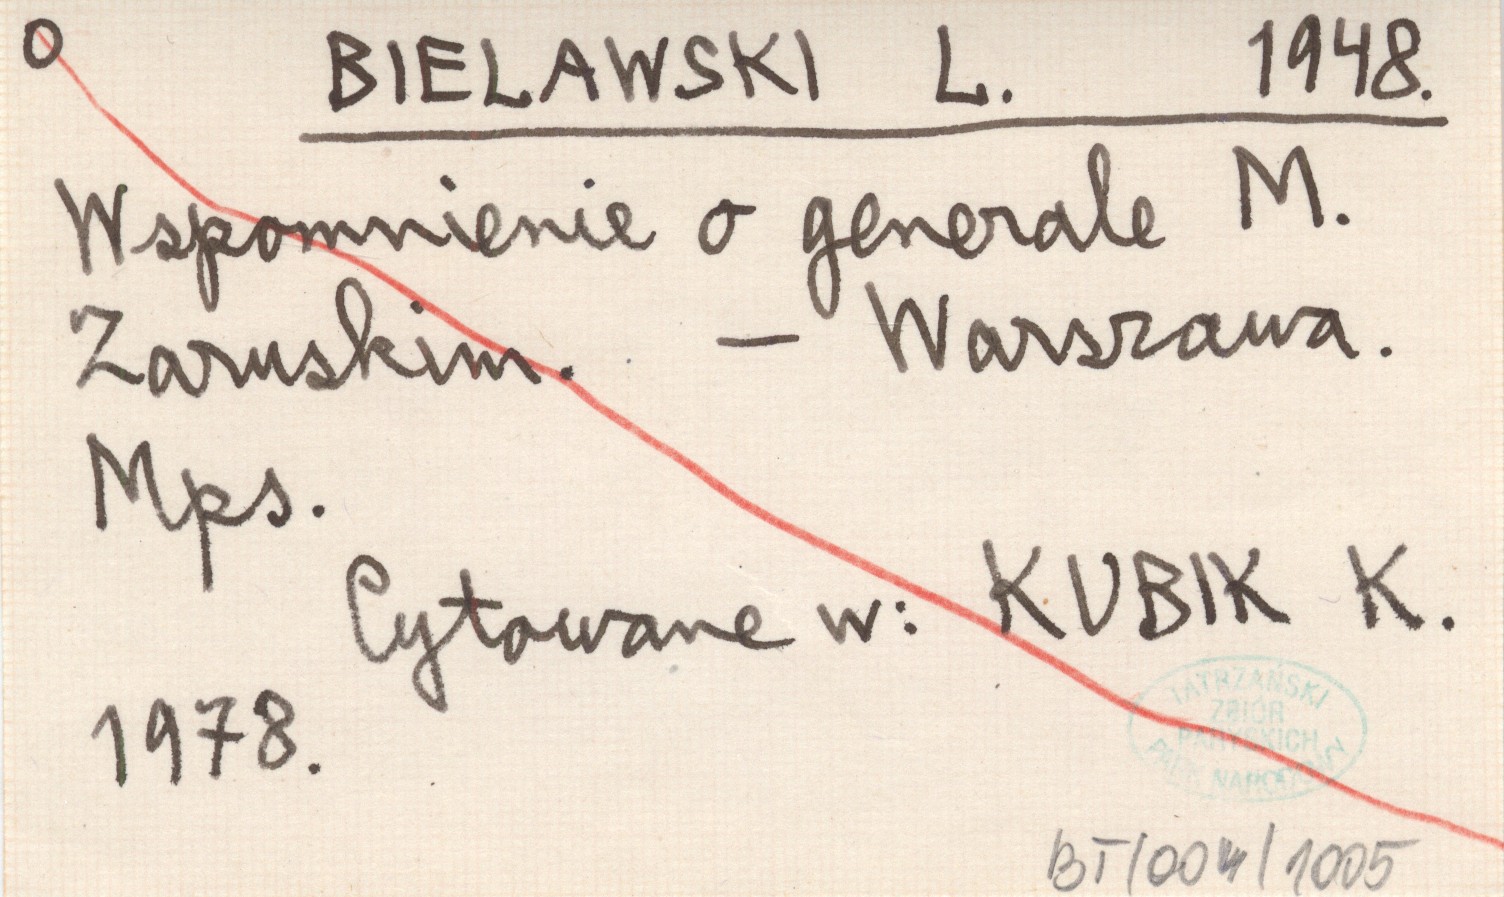 O BIELAWSKI L. 1948.
Wspomnienie o generale M.
Zaruskim. — Warszawa.
Mps.
Cytowane w: KUBIK K.
1978.
TATRZAŃSKI
ZBIÓR
PARYSKICH
PARK NARODOWY